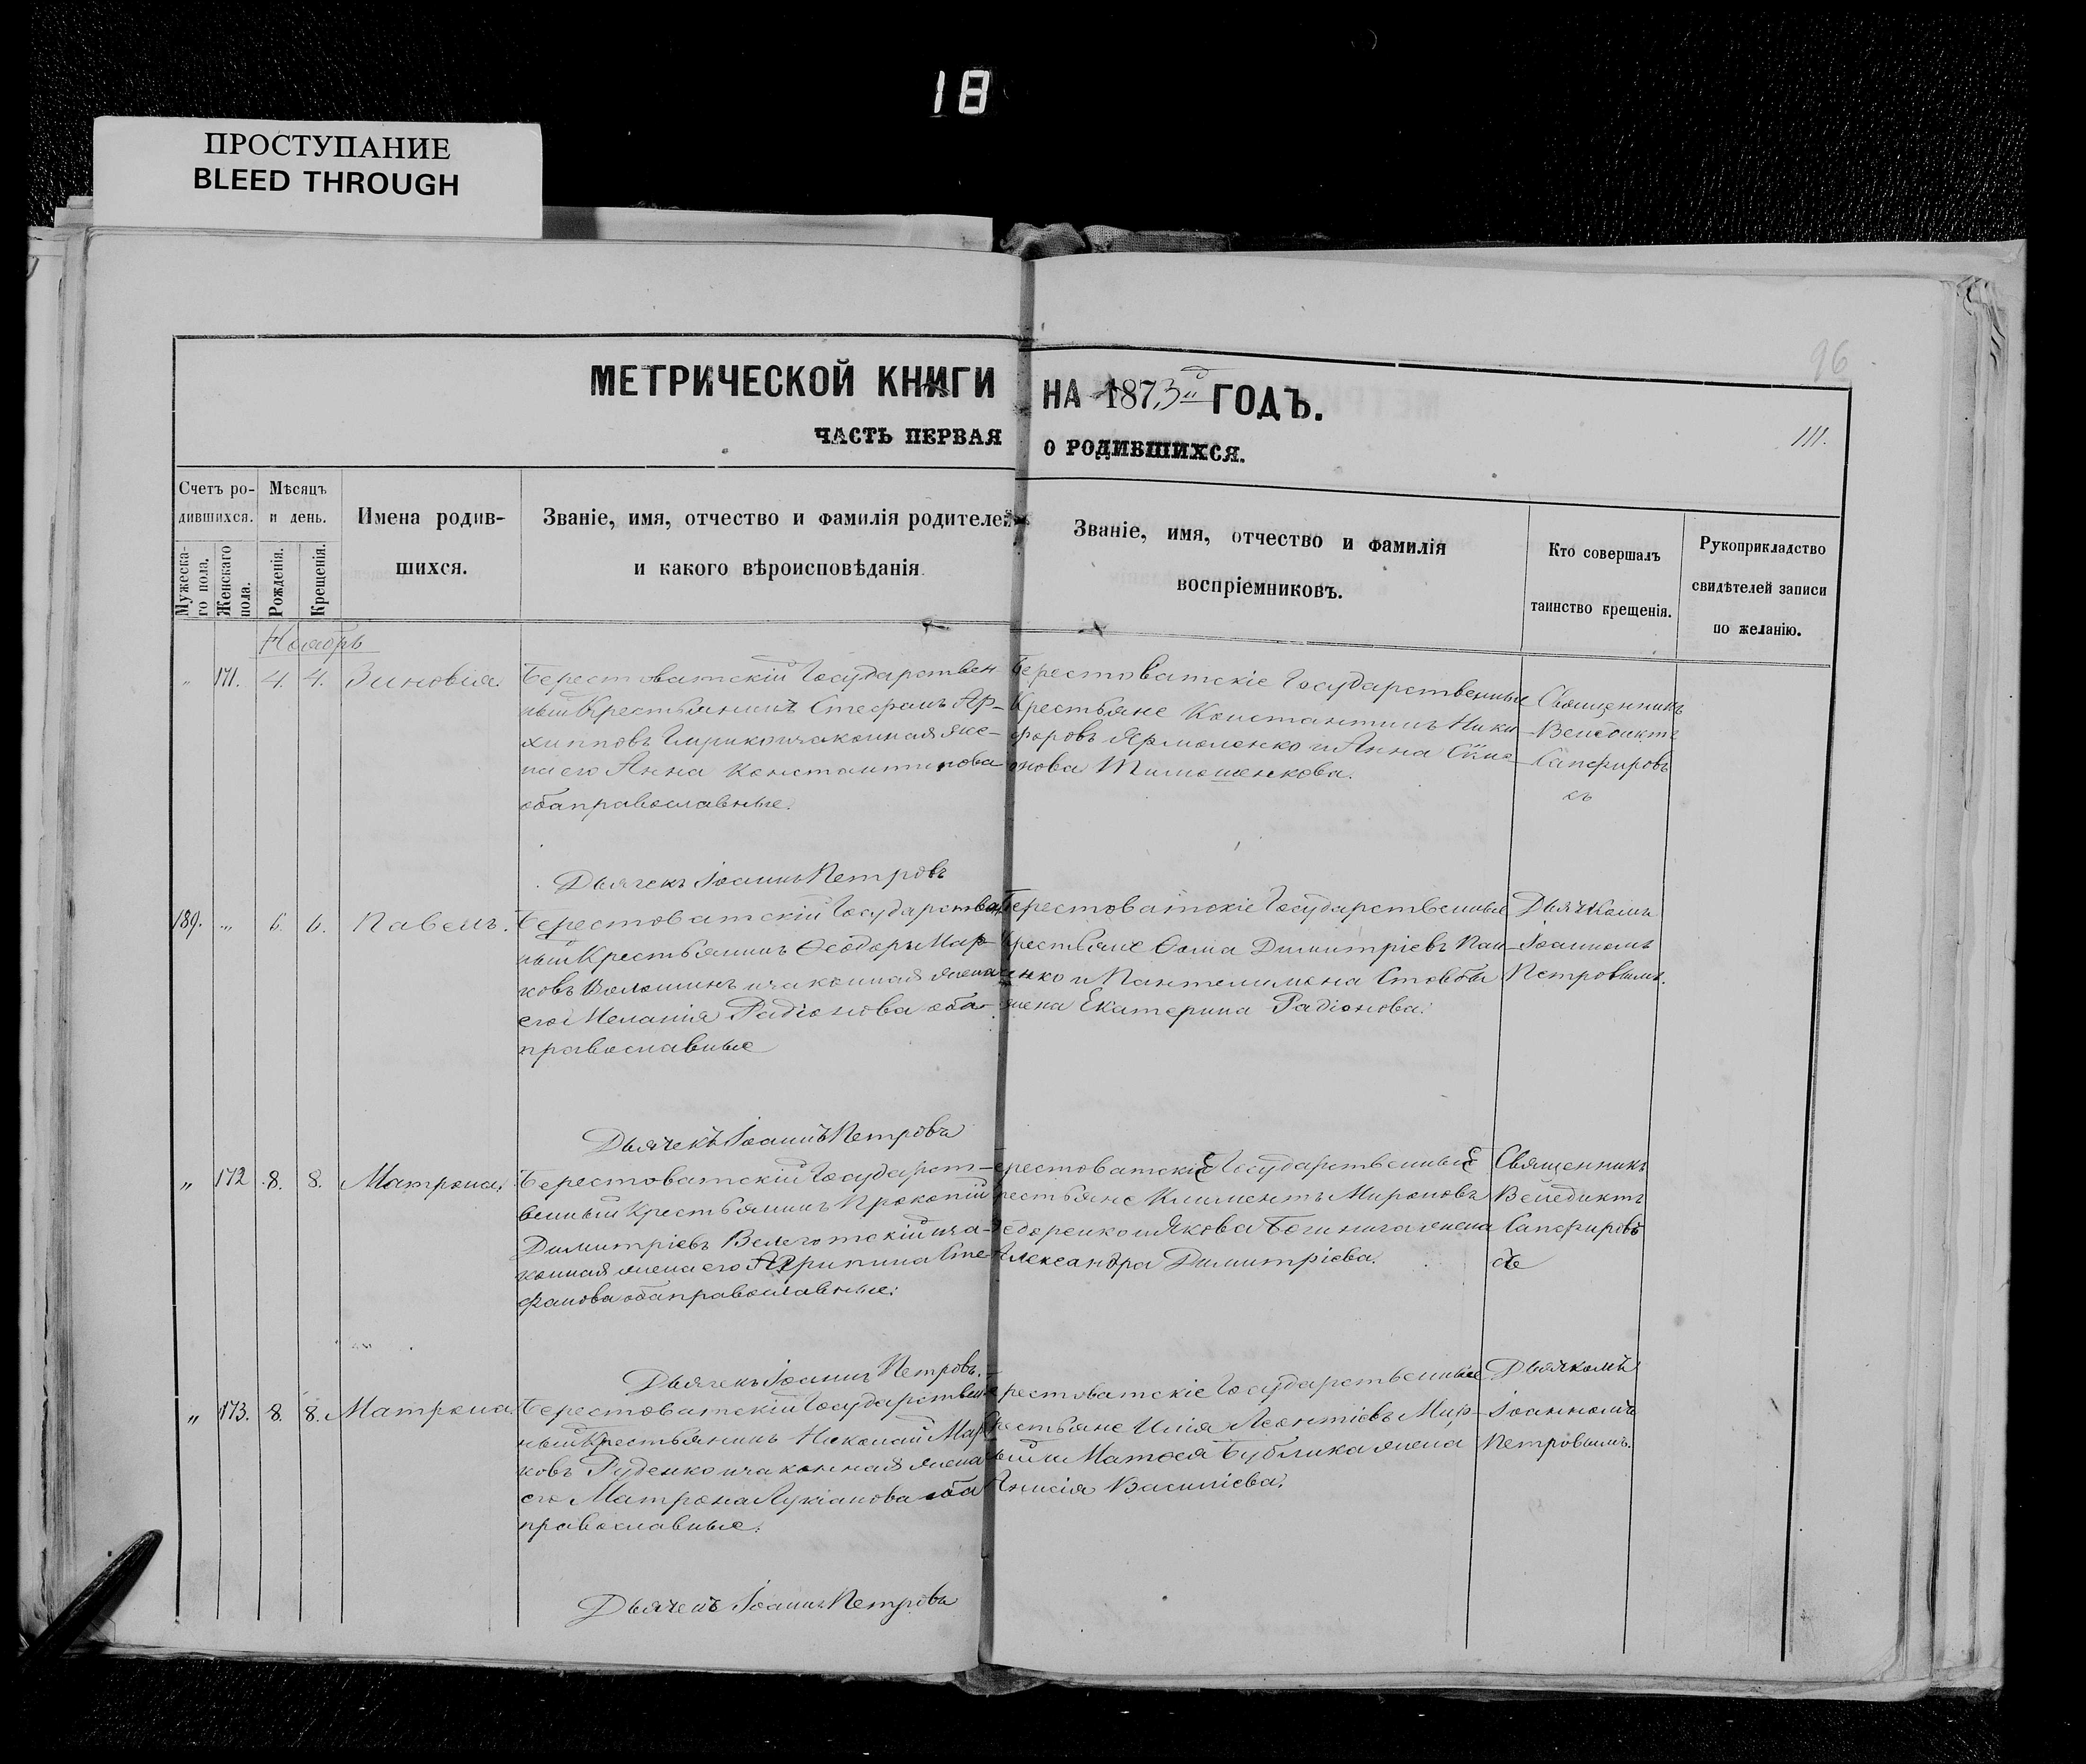 18
ПРОСТУПАНИЕ
BLEED THROUGH
96
МЕТРИЧЕСКОЙ КНИГИ НА 1873й ГОДЪ.
ЧАСТЬ ПЕРВАЯ О РОДИВШИХСЯ.
111.
Счетъ родившихся.
Мужескаго пола.
Женскаго пола.
Мѣсяцъ и день.
Рожденія.
Крещенія.
Имена родив-
шихся.
Званіе, имя, отчество и фамилія родителей
и какого вѣроисповѣданія
Званіе, имя, отчество и фамилія
воспріемниковъ.
Кто совершалъ
таинство крещенія.
Рукоприкладство
свидѣтелей записи
по желанію.
Ноябрь
„ 171. 4. 4. Зиновія.
Берестоватскій Государствен
ный Крестьянинъ Стефанъ Ар-
хипповъ и законная же-
на его Анна Константинова
оба православные.
Берестоватскіе Государственные
Крестьяне Константинъ Ники
форовъ Ярмоленко и Анна
Тимошенкова.
Священникъ
Венедиктъ
Сапфировъ
Дьячекъ Іоаннъ Петровъ
189. „ 6. 6. Павелъ.
Берестоватскій Государствен
ный Крестьянинъ Ѳеодоръ Мар-
ковъ Волошинъ и законная жена
его Меланія Радіонова оба
православные
Берестоватскіе Государственные
Крестьяне Ѳома Димитріевъ Пан
енко и Пантелимона Стовбы
жена Екатерина Радіонова.
Дьячкомъ
Іоанномъ
Петровымъ.
Дьячекъ Іоаннъ Петровъ
„ 172 8. 8. Матрона.
Берестоватскій Государст-
венный Крестьянинъ Прокопій
Димитріевъ и за-
конная жена его Агрипина Сте-
фанова оба православные.
Берестоватскіе Государственные
Крестьяне Климентъ Мироновъ
Ѳедоренко и Якова жена
Александра Димитріева.
Священникъ
Венедиктъ
Сапфировъ
Дьячекъ Іоаннъ Петровъ.
„ 173. 8. 8. Матрона.
Берестоватскій Государствен
ный Крестьянинъ Николай Мар
ковъ Руденко и законная жена
его Матрона Лукіанова оба
православные.
Берестоватскіе Государственные
Крестьяне Илія Леонтіевъ Мир-
ный и Матѳея Бублика жена
Анисія Василіева.
Дьячкомъ
Іоанномъ
Петровымъ.
Дьячекъ Іоаннъ Петровъ